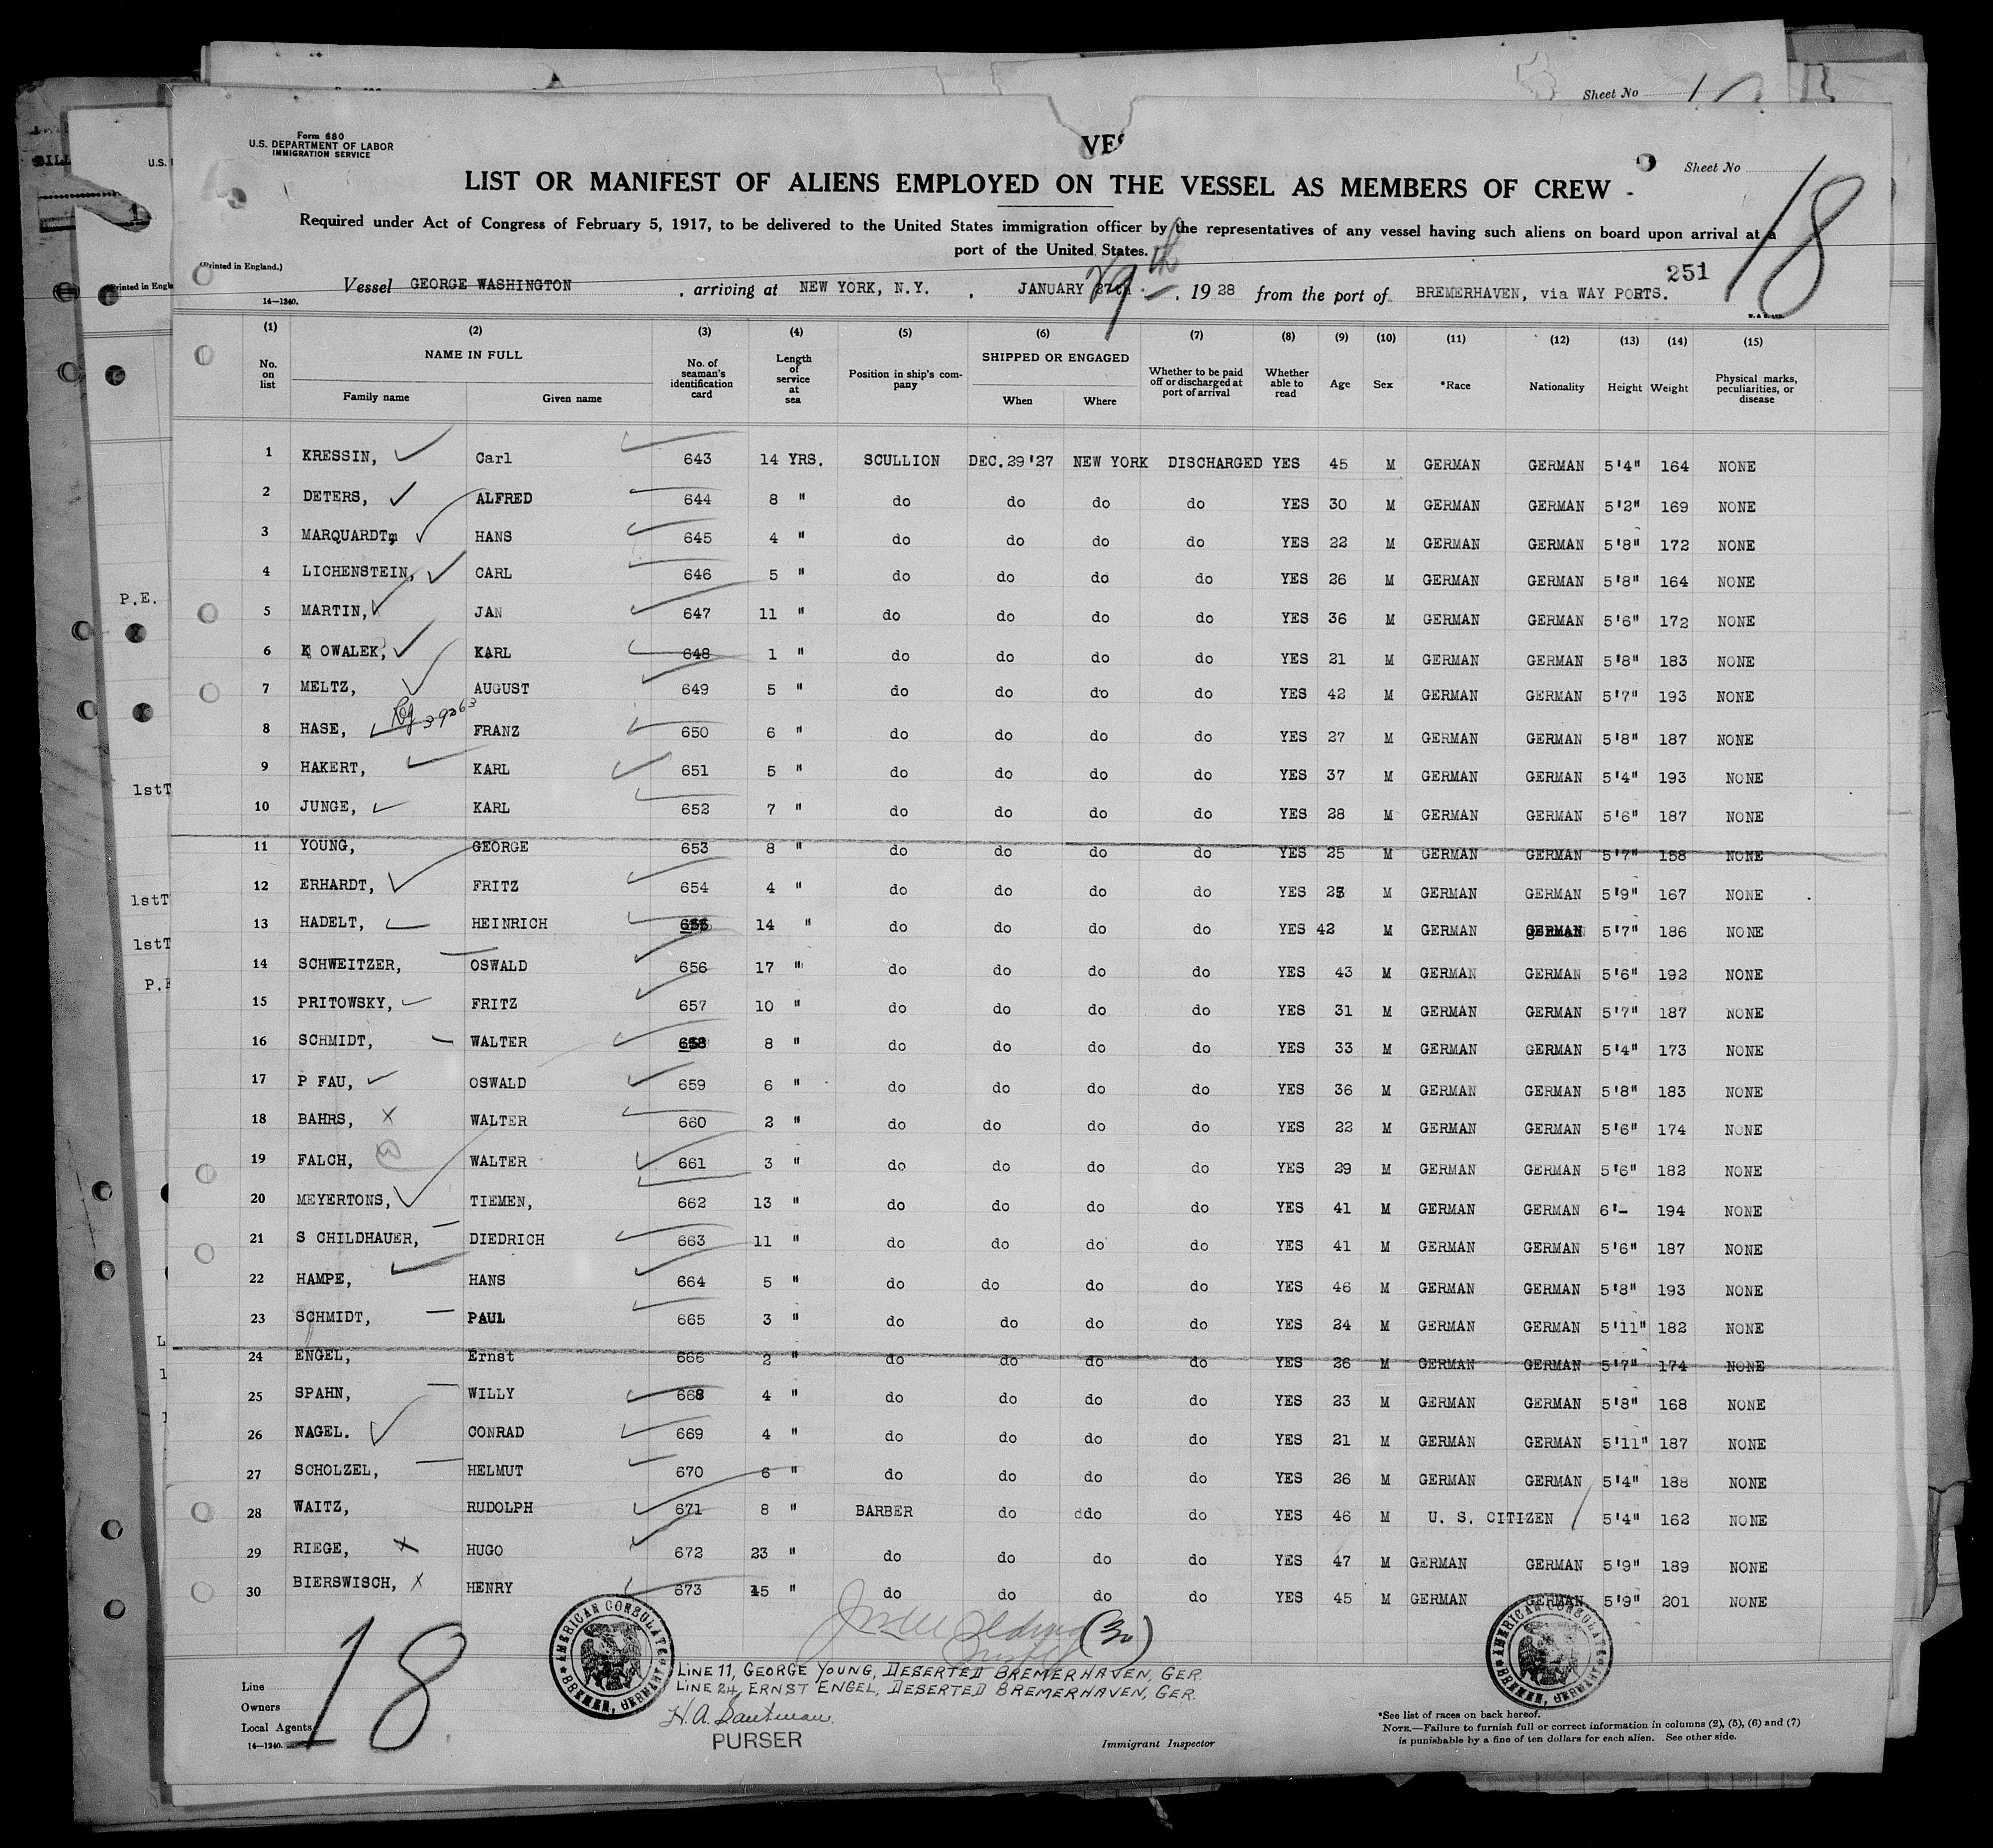 Sheet No
Form 680
U.S. DEPARTMENT OF LABOR
IMMIGRATION SERVICE
VES
Sheet No 18
LIST OR MANIFEST OF ALIENS EMPLOYED ON THE VESSEL AS MEMBERS OF CREW
Required under Act of Congress of February 5, 1917, to be delivered to the United States immigration officer by the representatives of any vessel having such aliens on board upon arrival at a
port of the United States.
(Printed in England.)
251
14—1240.
Vessel GEORGE WASHINGTON, arriving at NEW YORK, N.Y., JANUARY 29th, 1928 from the port of BREMERHAVEN, via WAY PORTS.
(1) (2) (3) (4) (5) (6) (7) (8) (9) (10) (11) (12) (13) (14) (15)
No. on list NAME IN FULL Family name Given name No. of seaman's identification card Length of service at sea Position in ship's company SHIPPED OR ENGAGED When Where Whether to be paid off or discharged at port of arrival Whether able to read Age Sex *Race Nationality Height Weight Physical marks, peculiarities, or disease
1 KRESSIN, Carl 643 14 YRS. SCULLION DEC.29'27 NEW YORK DISCHARGED YES 45 M GERMAN GERMAN 5'4" 164 NONE
2 DETERS, ALFRED 644 8 " do do do do YES 30 M GERMAN GERMAN 5'2" 169 NONE
3 MARQUARDT, HANS 645 4 " do do do do YES 22 M GERMAN GERMAN 5'8" 172 NONE
4 LICHENSTEIN, CARL 646 5 " do do do do YES 26 M GERMAN GERMAN 5'8" 164 NONE
5 MARTIN, JAN 647 11 " do do do do YES 36 M GERMAN GERMAN 5'6" 172 NONE
6 K OWALEK, KARL 648 1 " do do do do YES 21 M GERMAN GERMAN 5'8" 183 NONE
7 MELTZ, AUGUST 649 5 " do do do do YES 42 M GERMAN GERMAN 5'7" 193 NONE
8 HASE, FRANZ 650 6 " do do do do YES 27 M GERMAN GERMAN 5'8" 187 NONE
9 HAKERT, KARL 651 5 " do do do do YES 37 M GERMAN GERMAN 5'4" 193 NONE
10 JUNGE, KARL 652 7 " do do do do YES 28 M GERMAN GERMAN 5'6" 187 NONE
11 YOUNG, GEORGE 653 8 " do do do do YES 25 M GERMAN GERMAN 5'7" 158 NONE
12 ERHARDT, FRITZ 654 4 " do do do do YES M GERMAN GERMAN 5'9" 167 NONE
13 HADELT, HEINRICH 655 14 " do do do do YES 42 M GERMAN GERMAN 5'7" 186 NONE
14 SCHWEITZER, OSWALD 656 17 " do do do do YES 43 M GERMAN GERMAN 5'6" 192 NONE
15 PRITOWSKY, FRITZ 657 10 " do do do do YES 31 M GERMAN GERMAN 5'7" 187 NONE
16 SCHMIDT, WALTER 658 8 " do do do do YES 33 M GERMAN GERMAN 5'4" 173 NONE
17 P FAU, OSWALD 659 6 " do do do do YES 36 M GERMAN GERMAN 5'8" 183 NONE
18 BAHRS, X WALTER 660 2 " do do do do YES 22 M GERMAN GERMAN 5'6" 174 NONE
19 FALCH, WALTER 661 3 " do do do do YES 29 M GERMAN GERMAN 5'6" 182 NONE
20 MEYERTONS, TIEMEN, 662 13 " do do do do YES 41 M GERMAN GERMAN 6'- 194 NONE
21 S CHILDHAUER, DIEDRICH 663 11 " do do do do YES 41 M GERMAN GERMAN 5'6" 187 NONE
22 HAMPE, HANS 664 5 " do do do do YES 46 M GERMAN GERMAN 5'8" 193 NONE
23 SCHMIDT, PAUL 665 3 " do do do do YES 24 M GERMAN GERMAN 5'11" 182 NONE
24 ENGEL, Ernst 666 2 " do do do do YES 26 M GERMAN GERMAN 5'7" 174 NONE
25 SPAHN, WILLY 668 4 " do do do do YES 23 M GERMAN GERMAN 5'8" 168 NONE
26 NAGEL. CONRAD 669 4 " do do do do YES 21 M GERMAN GERMAN 5'11" 187 NONE
27 SCHOLZEL, HELMUT 670 6 " do do do do YES 26 M GERMAN GERMAN 5'4" 188 NONE
28 WAITZ, RUDOLPH 671 8 " BARBER do ddo do YES 46 M U. S. CITIZEN 5'4" 162 NONE
29 RIEGE, X HUGO 672 23 " do do do do YES 47 M GERMAN GERMAN 5'9" 189 NONE
30 BIERSWISCH, X HENRY 673 15 " do do do do YES 45 M GERMAN GERMAN 5'9" 201 NONE
18
AMERICAN CONSULATE BREMEN, GERMANY
(30)
AMERICAN CONSULATE BREMEN, GERMANY
LINE 11, GEORGE YOUNG, DESERTED BREMERHAVEN, GER.
LINE 24, ERNST ENGEL, DESERTED BREMERHAVEN, GER.
H.A.
PURSER
Line
Owners
Local Agents
14—1240.
Immigrant Inspector
*See list of races on back hereof.
NOTE.—Failure to furnish full or correct information in columns (2), (5), (6) and (7)
is punishable by a fine of ten dollars for each alien. See other side.
P.E.
1stT
1stT
1stT